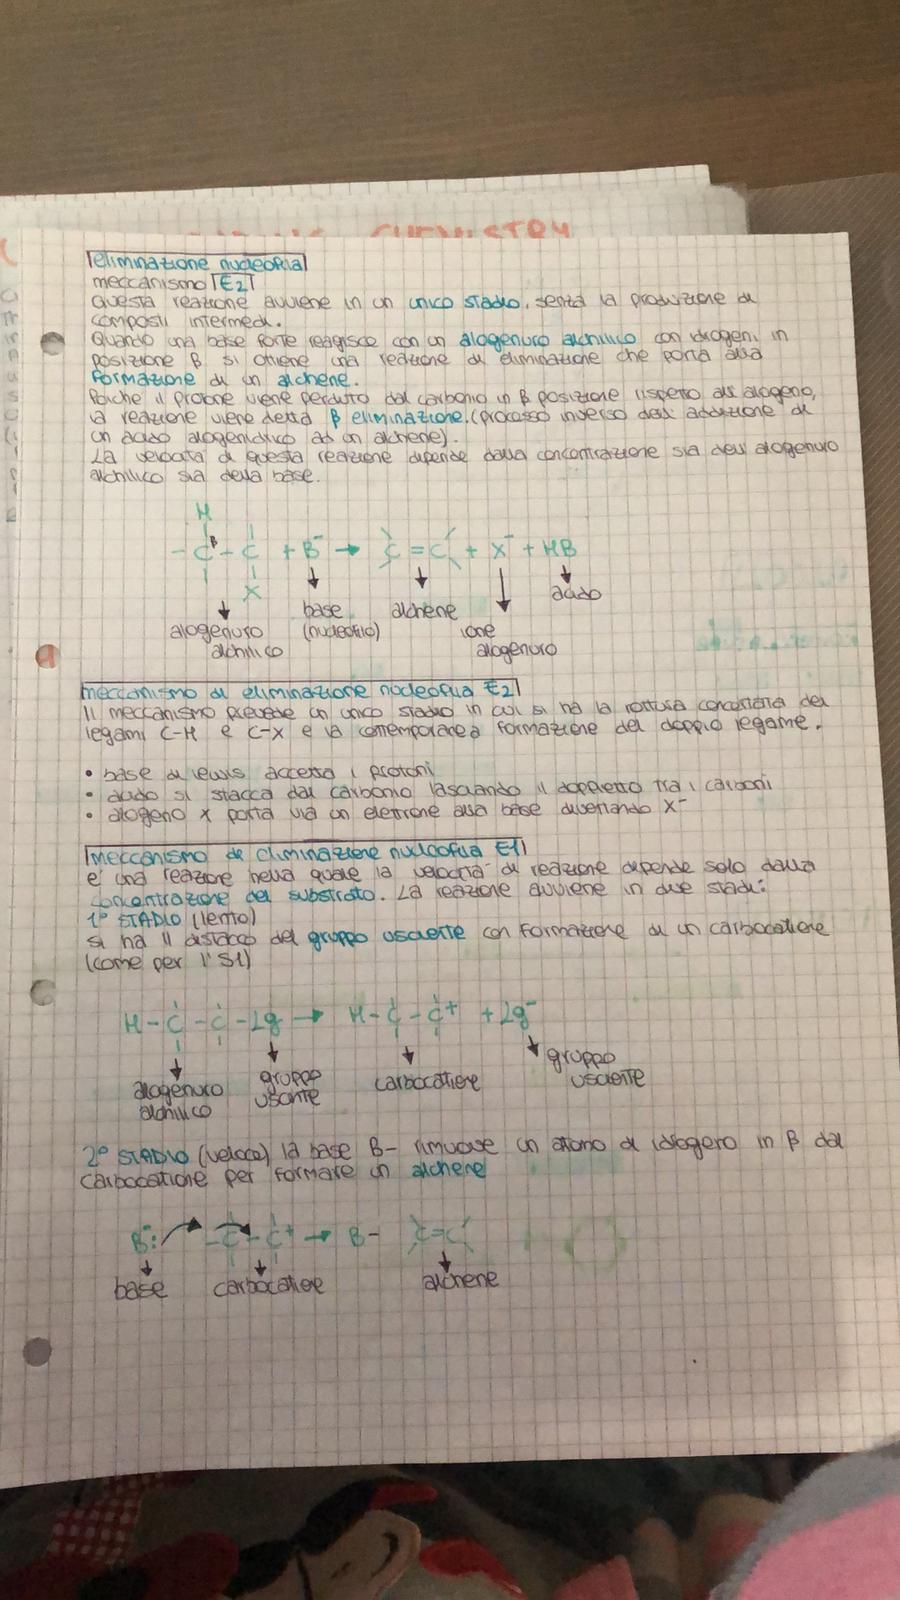 CHEMISTRY
eliminazione nucleofila
meccanismo E2
Questa reazione avviene in un unico stadio, senza la produzione di
composti intermedi.
Quando una base forte reagisce con un alogenuro alchilico con idrogeni in
posizione β si ottiene una reazione di eliminazione che porta alla
formazione di un alchene.
Poiche il protone viene perduto dal carbonio in β posizione rispetto all'alogeno,
la reazione viene detta β eliminazione. (processo inverso dell'addizione di
un acido alogenidrico ad un alchene).
La velocità di questa reazione dipende dalla concentrazione sia dell'alogenuro
alchilico sia della base.
H
- C β - C + B⁻ → C = C + X⁻ + HB
X
alogenuro alchilico
base (nucleofilo)
alchene
ione alogenuro
acido
meccanismo di eliminazione nucleofila E2
Il meccanismo prevede un unico stadio in cui si ha la rottura concertata dei
legami C-H e C-X e la contemporanea formazione del doppio legame.
• base di lewis accetta i protoni
• acido si stacca dal carbonio lasciando il doppietto tra i carboni
• alogeno x porta via un elettrone alla base diventando X⁻
Meccanismo di eliminazione nucleofila E1
e' una reazione nella quale la velocità di reazione dipende solo dalla
concentrazione del substrato. La reazione avviene in due stadi:
1° STADIO (lento)
si ha il distacco del gruppo uscente con formazione di un carbocatione
(come per l'S1)
H - C - C - Lg → H - C - C⁺ + Lg⁻
alogenuro alchilico
gruppo uscente
carbocatione
gruppo uscente
2° STADIO (veloce) la base B- rimuove un atomo di idrogeno in β dal
carbocatione per formare un alchene
B⁻: - C - C⁺ → B- C=C
base
carbocatione
alchene